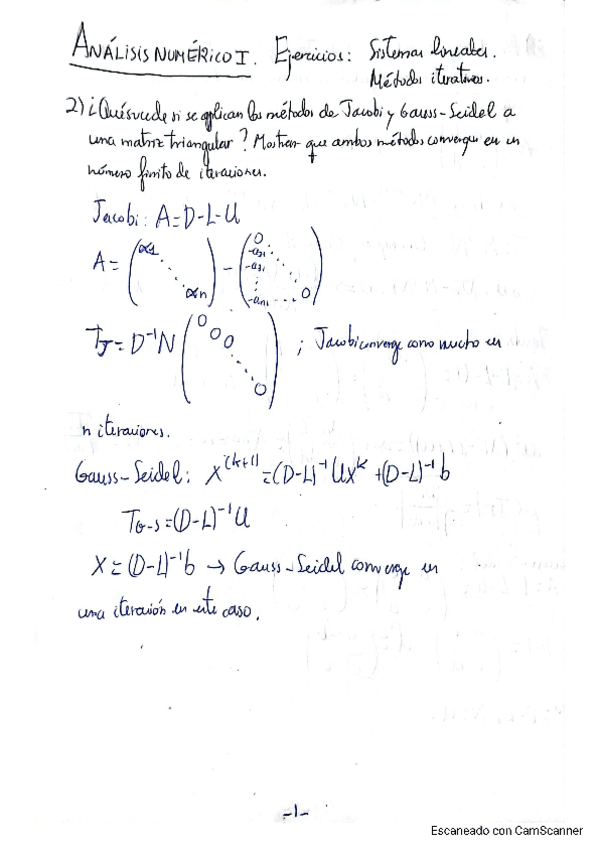 ANÁLISIS NUMÉRICO I. Ejercicios: Sistemas lineales.
Métodos iterativos.
2) ¿Qué sucede si se aplican los métodos de Jacobi y Gauss-Seidel a
una matriz triangular? Mostrar que ambos métodos convergen en un
número finito de iteraciones.
Jacobi: A=D-L-U
A = (α1 ⋱ αn) - (0 -a21 -a31 ⋮ -an1 ... 0)
TJ = D⁻¹N (0 0 0 ⋱ 0) ; Jacobi converge como mucho en
n iteraciones.
Gauss-Seidel: X^(k+1) = (D-L)⁻¹Ux^k + (D-L)⁻¹b
TG-S = (D-L)⁻¹U
X = (D-L)⁻¹b → Gauss-Seidel converge en
una iteración en este caso.
-1-
Escaneado con CamScanner